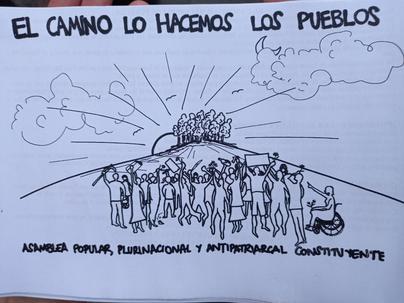 EL CAMINO LO HACEMOS LOS PUEBLOS
ASAMBLEA POPULAR, PLURINACIONAL Y ANTIPATRIARCAL CONSTITUYENTE